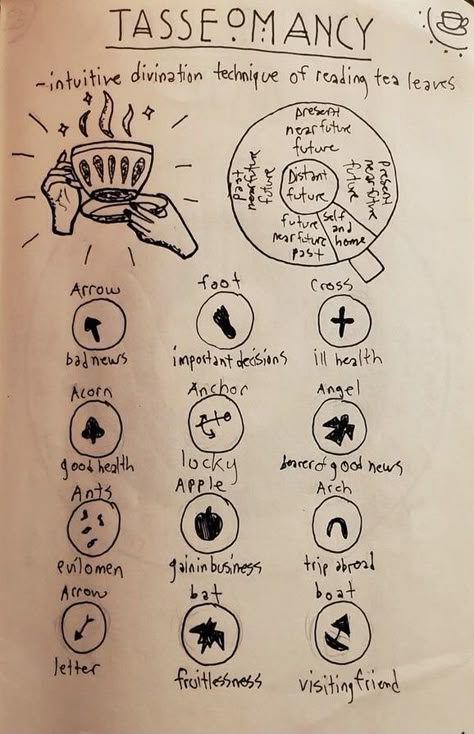 TASSEOMANCY
-intuitive divination technique of reading tea leaves
present
near future
future
present
near future
future
Distant
future
past
near future
future
future
near future
past
self
and
home
Arrow
foot
Cross
bad news
important decisions
ill health
Acorn
Anchor
Angel
good health
lucky
bearer of good news
Ants
APPLE
Arch
evil omen
gain in business
trip abroad
Arrow
bat
boat
letter
fruitlessness
visiting friend